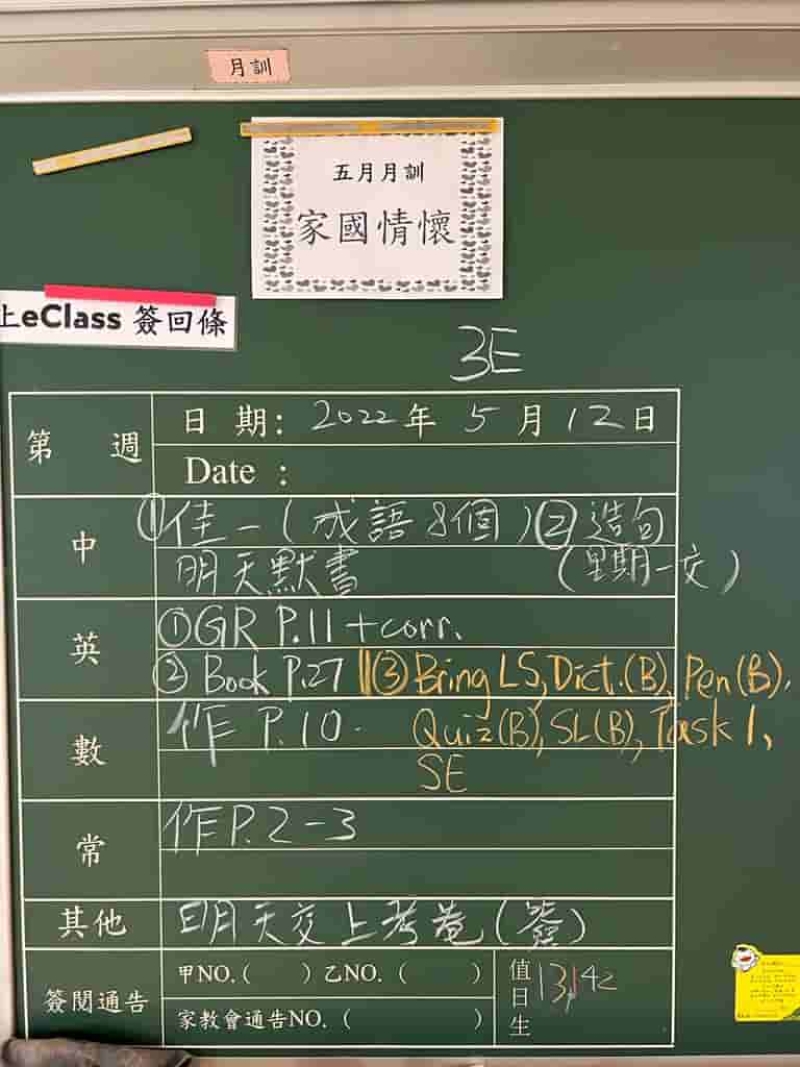 月訓
五月月訓
家國情懷
上eClass 簽回條
3E
第 週
日 期: 2022年 5 月 12 日
Date :
中
①佳一(成語8個) ②造句
明天默書 (星期一交)
英
①GR P.11+corr.
② Book P.27 ③ Bring LS, Dict.(B), Pen(B).
數
作 P.10. Quiz(B), SL(B), Task 1,
SE
常
作P.2-3
其他
明天交上考卷(簽)
簽閱通告
甲NO.( ) 乙NO. ( )
家教會通告NO. ( )
值日生